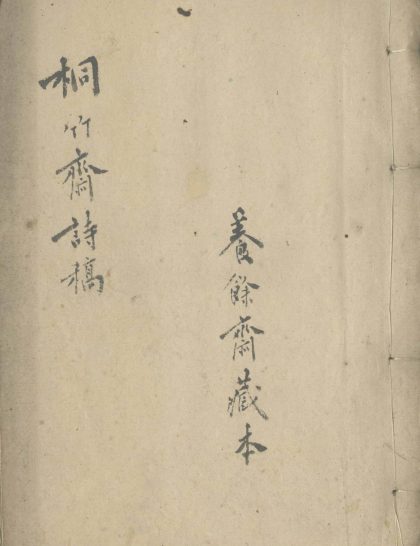 養餘齋藏本
桐竹齋詩稿